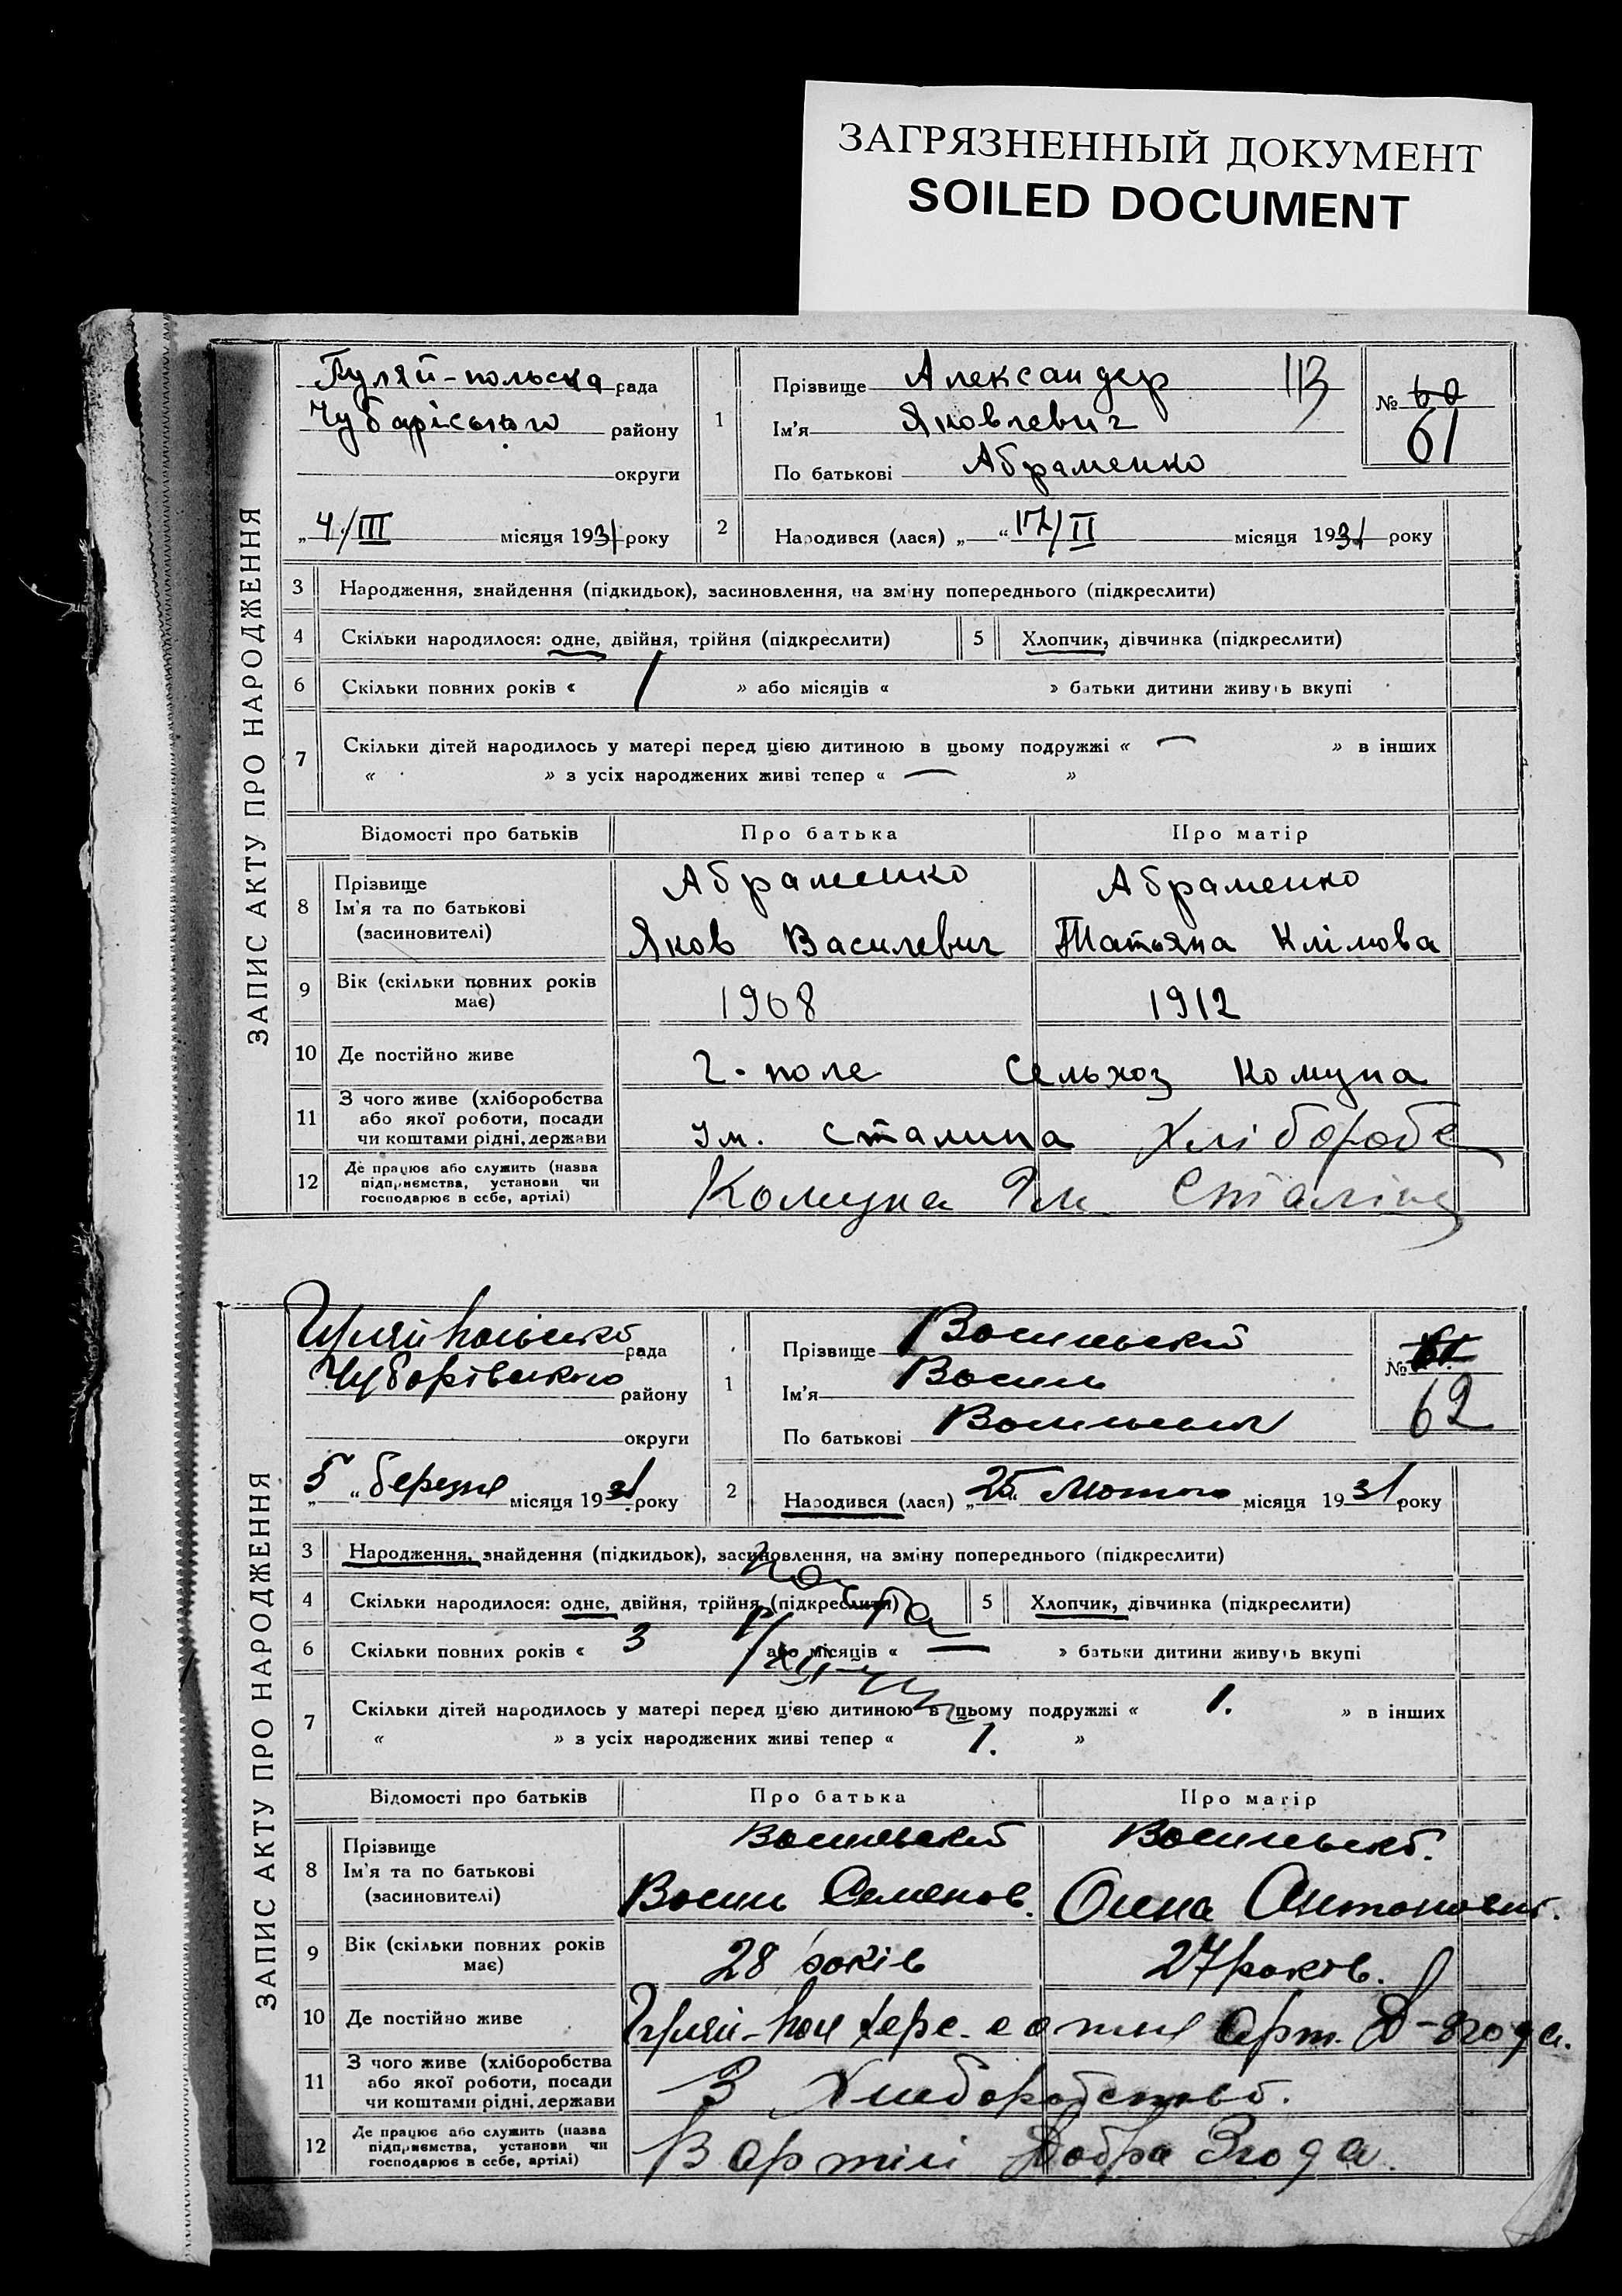 ЗАГРЯЗНЕННЫЙ ДОКУМЕНТ
SOILED DOCUMENT
ЗАПИС АКТУ ПРО НАРОДЖЕННЯ
Гуляй-польська рада
Чубарівського району
округи
„4/III місяця 1931 року
1
Прізвище Александер 113
Ім'я Яковлевич
По батькові Абраменко
№ 60
61
2 Народився (лася) „ “ 17/II місяця 1931 року
3 Народження, знайдення (підкидьок), засиновлення, на зміну попереднього (підкреслити)
4 Скільки народилося: одне, двійня, трійня (підкреслити) 5 Хлопчик, дівчинка (підкреслити)
6 Скільки повних років « 1 » або місяців « » батьки дитини живуть вкупі
7 Скільки дітей народилось у матері перед цією дитиною в цьому подружжі « — » в інших
« » з усіх народжених живі тепер « — »
Відомості про батьків Про батька Про матір
8 Прізвище Абраменко Абраменко
Ім'я та по батькові
(засиновителі) Яков Василевич Татьяна Клімова
9 Вік (скільки повних років має) 1908 1912
10 Де постійно живе Г-поле Сельхоз Комуна
11 З чого живе (хліборобства
або якої роботи, посади
чи коштами рідні, держави Ім. Сталина Хлібороб
12 Де працює або служить (назва
підприємства, установи чи
господарює в себе, артілі) Комуна Ім Сталіна
ЗАПИС АКТУ ПРО НАРОДЖЕННЯ
Гуляйпільської рада
Чубарівського району
округи
„5“ березня місяця 1931 року
1
Прізвище Васильский
Ім'я Василь
По батькові Васильевич
№ 61
62
2 Народився (лася) „25“ Лютого місяця 1931 року
3 Народження, знайдення (підкидьок), засиновлення, на зміну попереднього (підкреслити)
4 Скільки народилося: одне, двійня, трійня (підкреслити) 5 Хлопчик, дівчинка (підкреслити)
6 Скільки повних років « 3 » або місяців « — » батьки дитини живуть вкупі
7 Скільки дітей народилось у матері перед цією дитиною в цьому подружжі « 1. » в інших
« » з усіх народжених живі тепер « 1. »
Відомості про батьків Про батька Про матір
8 Прізвище Васильский
Ім'я та по батькові
(засиновителі) Василь Семенов. Анна Антоновна.
9 Вік (скільки повних років має) 28 років 27 років.
10 Де постійно живе Гуляй-Пол Херс. сотня Арт. Д-згода.
11 З чого живе (хліборобства
або якої роботи, посади
чи коштами рідні, держави З Хлеборобства.
12 Де працює або служить (назва
підприємства, установи чи
господарює в себе, артілі) В артілі Добра Згода.